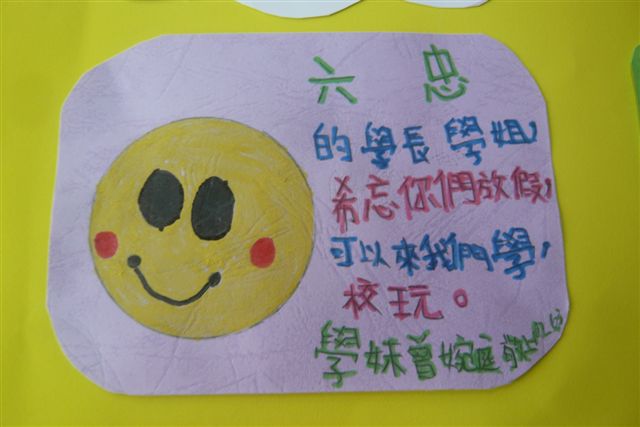 六忠
的學長學姐,
希忘你們放假,
可以來我們學,
校玩。
學妹曾婉庭敬上